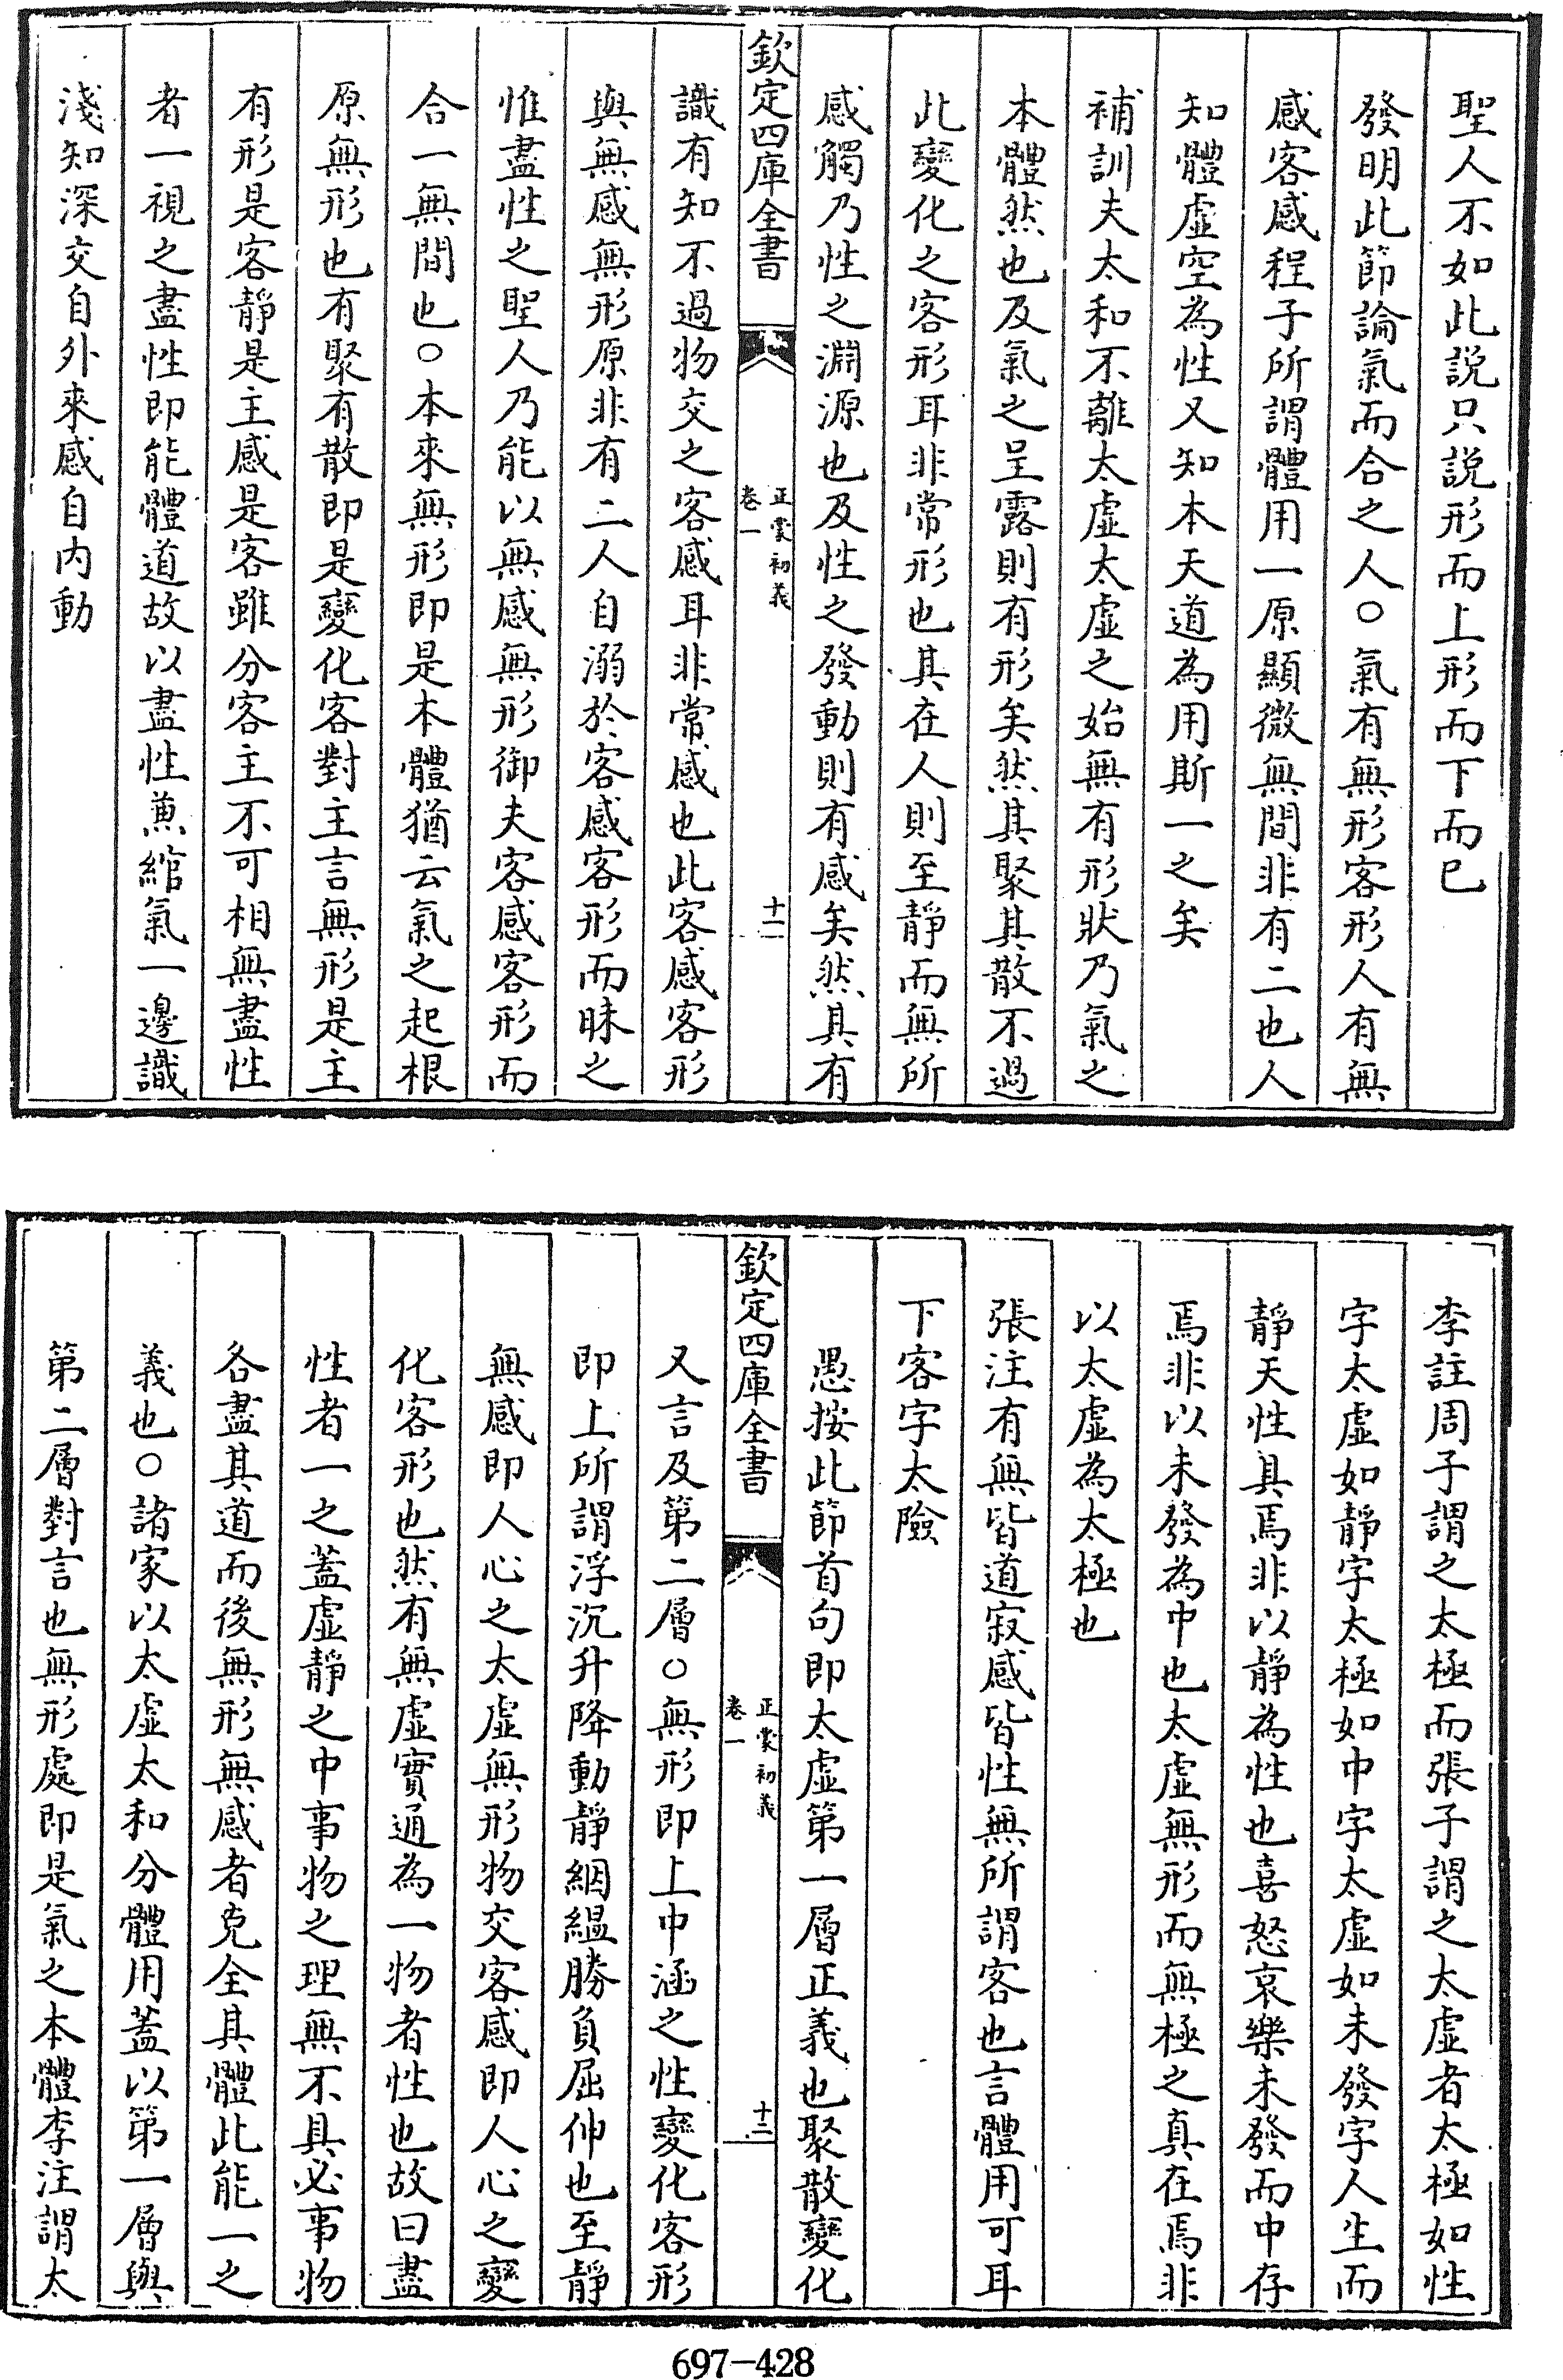 聖人不如此説只説形而上形而下而已
發明此節論氣而合之人○氣有無形客形人有無
感客感程子所謂體用一原顯微無間非有二也人
知體虛空為性又知本天道為用斯一之矣
補訓夫太和不離太虛太虛之始無有形狀乃氣之
本體然也及氣之呈露則有形矣然其聚其散不過
此變化之客形耳非常形也其在人則至靜而無所
感觸乃性之淵源也及性之發動則有感矣然其有
欽定四庫全書
正蒙初義
卷一
十一
識有知不過物交之客感耳非常感也此客感客形
與無感無形原非有二人自溺於客感客形而昧之
惟盡性之聖人乃能以無感無形御夫客感客形而
合一無間也○本來無形即是本體猶云氣之起根
原無形也有聚有散即是變化客對主言無形是主
有形是客靜是主感是客雖分客主不可相無盡性
者一視之盡性即能體道故以盡性兼綰氣一邊識
淺知深交自外來感自内動
李註周子謂之太極而張子謂之太虛者太極如性
字太虛如靜字太極如中字太虛如未發字人生而
靜天性具焉非以靜為性也喜怒哀樂未發而中存
焉非以未發為中也太虛無形而無極之真在焉非
以太虛為太極也
張注有無皆道寂感皆性無所謂客也言體用可耳
下客字太險
愚按此節首句即太虛第一層正義也聚散變化
欽定四庫全書
正蒙初義
卷一
十二
又言及第二層○無形即上中涵之性變化客形
即上所謂浮沉升降動靜絪緼勝負屈伸也至靜
無感即人心之太虛無形物交客感即人心之變
化客形也然有無虛實通為一物者性也故曰盡
性者一之蓋虛靜之中事物之理無不具必事物
各盡其道而後無形無感者克全其體此能一之
義也○諸家以太虛太和分體用蓋以第一層與
第二層對言也無形處即是氣之本體李注謂太
697-428